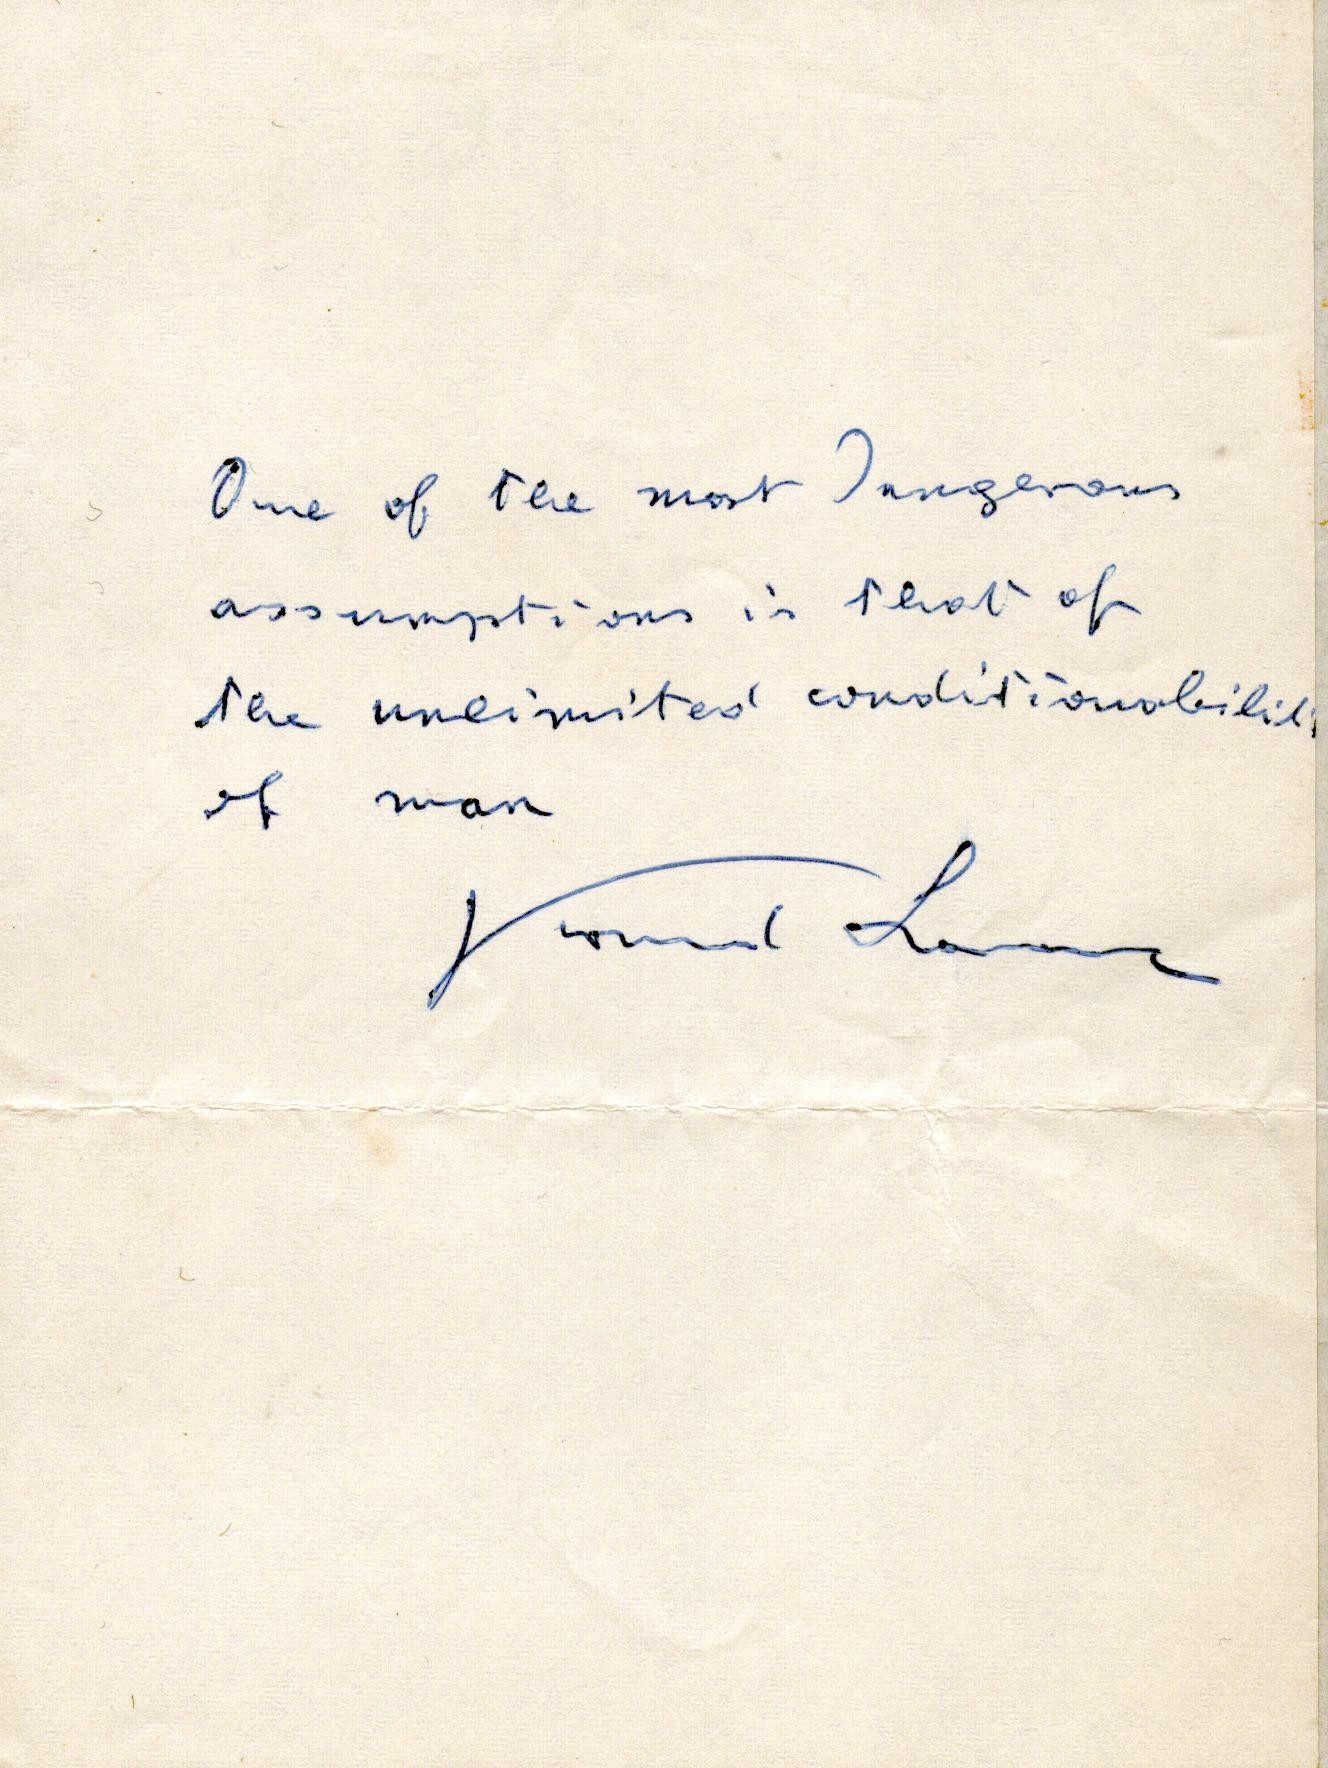 One of the most Dangerous
assumptions is that of
the unlimited conditionability
of man
Konrad Lorenz